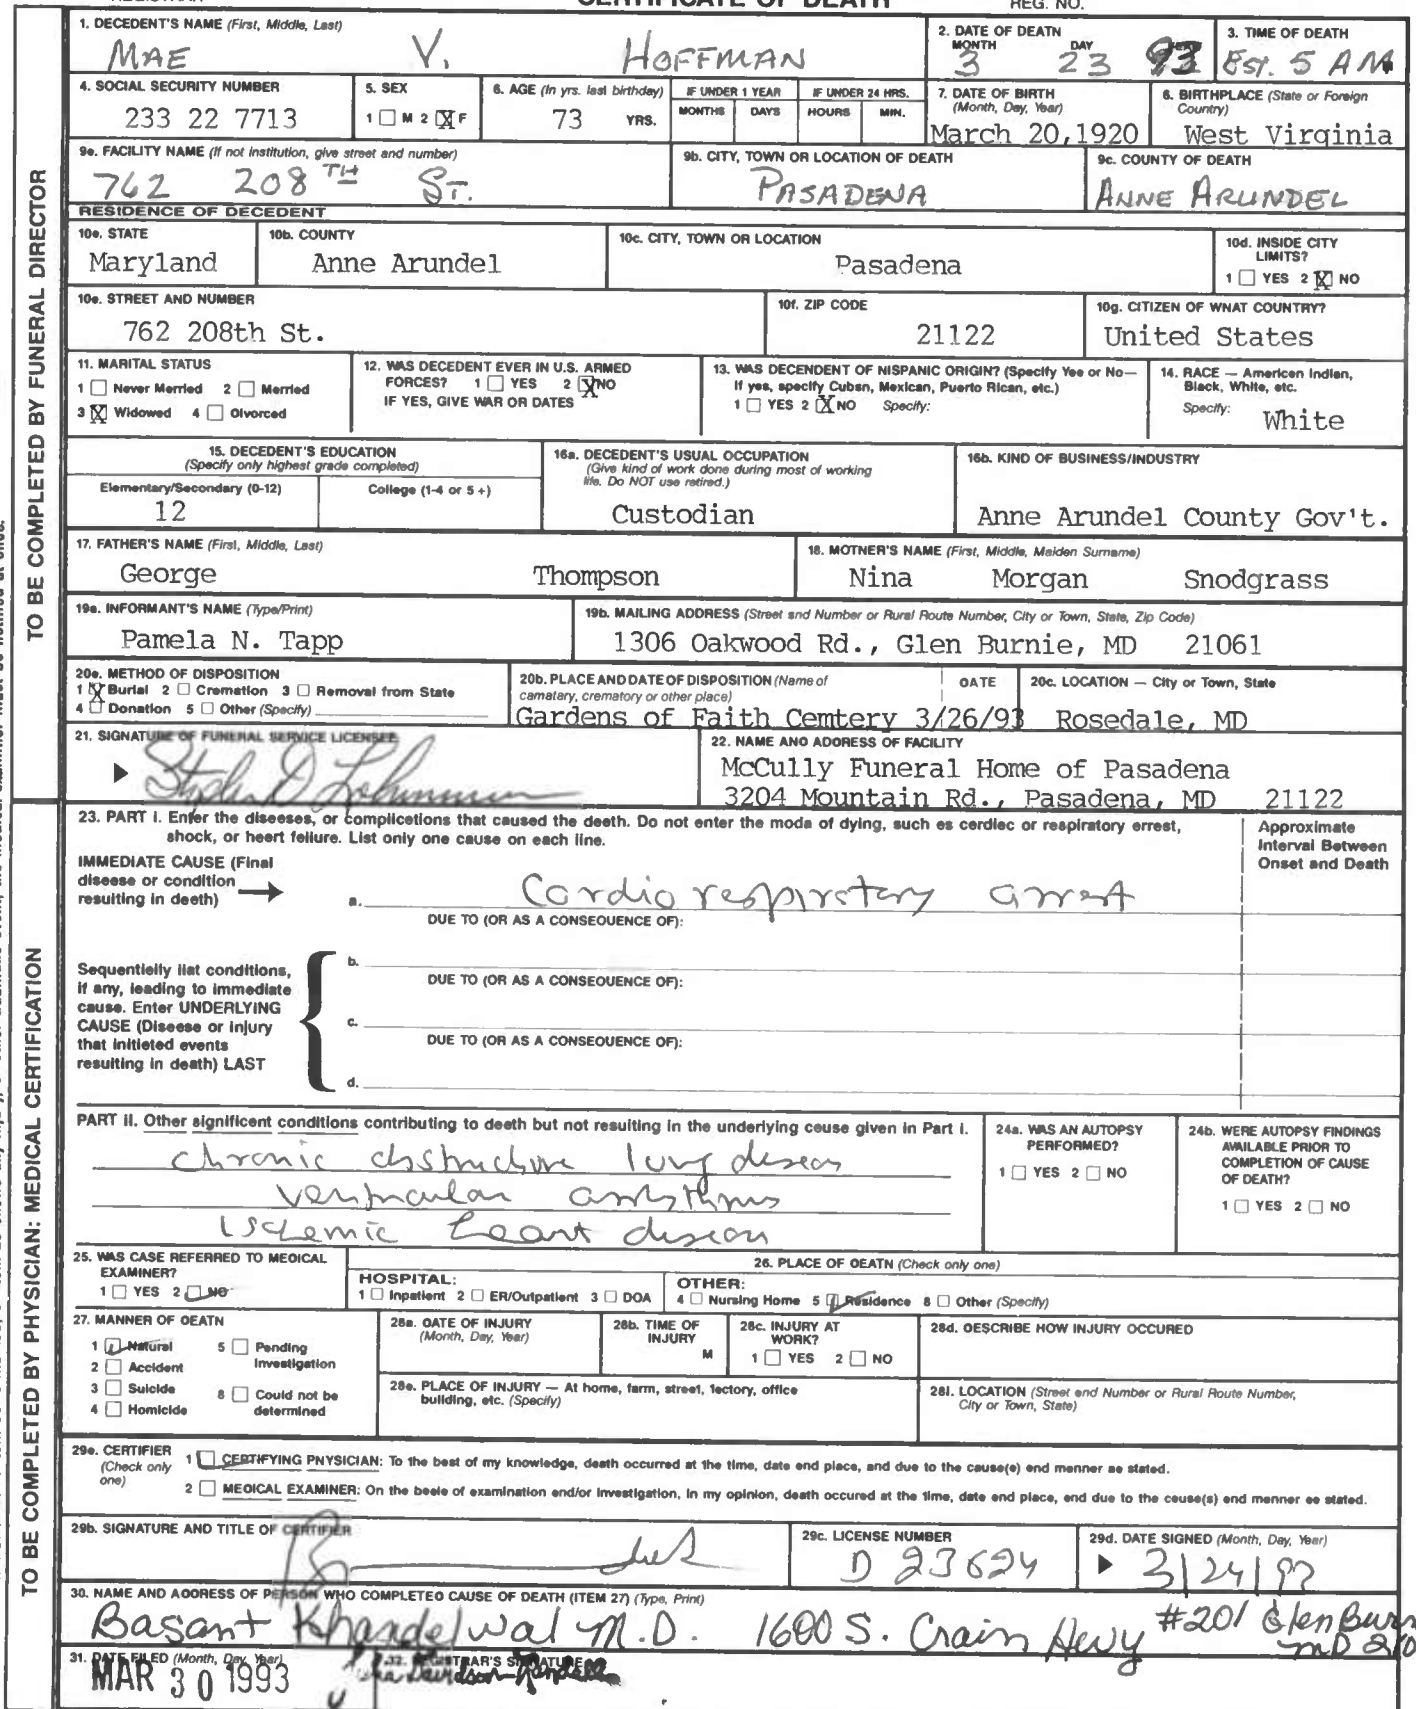 CERTIFICATE OF DEATH REG. NO.
1. DECEDENT'S NAME (First, Middle, Last)
MAE V. HOFFMAN
2. DATE OF DEATN
MONTH DAY
3 23 93
3. TIME OF DEATH
EST. 5 AM
4. SOCIAL SECURITY NUMBER
233 22 7713
5. SEX
1 ☐ M 2 ☒ F
6. AGE (In yrs. last birthday)
73 YRS.
IF UNDER 1 YEAR
MONTHS DAYS
IF UNDER 24 HRS.
HOURS MIN.
7. DATE OF BIRTH
(Month, Day, Year)
March 20,1920
6. BIRTHPLACE (State or Foreign
Country)
West Virginia
9e. FACILITY NAME (If not institution, give street and number)
762 208TH ST.
9b. CITY, TOWN OR LOCATION OF DEATH
PASADENA
9c. COUNTY OF DEATH
ANNE ARUNDEL
RESIDENCE OF DECEDENT
10e. STATE
Maryland
10b. COUNTY
Anne Arundel
10c. CITY, TOWN OR LOCATION
Pasadena
10d. INSIDE CITY
LIMITS?
1 ☐ YES 2 ☒ NO
10e. STREET AND NUMBER
762 208th St.
10f. ZIP CODE
21122
10g. CITIZEN OF WNAT COUNTRY?
United States
11. MARITAL STATUS
1 ☐ Never Merried 2 ☐ Merried
3 ☒ Widowed 4 ☐ Olvorced
12. WAS DECEDENT EVER IN U.S. ARMED
FORCES? 1 ☐ YES 2 ☒ NO
IF YES, GIVE WAR OR DATES
13. WAS DECENDENT OF NISPANIC ORIGIN? (Specify Yee or No—
If yes, specify Cuban, Mexican, Puerto Rican, etc.)
1 ☐ YES 2 ☒ NO Specify:
14. RACE — Americen Indlen,
Bleck, White, etc.
Specify: White
15. DECEDENT'S EDUCATION
(Specify only highest grade completed)
Elementary/Secondary (0-12)
12
College (1-4 or 5 +)
16a. DECEDENT'S USUAL OCCUPATION
(Give kind of work done during most of working
life. Do NOT use retired.)
Custodian
16b. KIND OF BUSINESS/INDUSTRY
Anne Arundel County Gov't.
17. FATHER'S NAME (First, Middle, Last)
George Thompson
18. MOTNER'S NAME (First, Middle, Maiden Surname)
Nina Morgan Snodgrass
19a. INFORMANT'S NAME (Type/Print)
Pamela N. Tapp
19b. MAILING ADDRESS (Street and Number or Rural Route Number, City or Town, State, Zip Code)
1306 Oakwood Rd., Glen Burnie, MD 21061
20e. METHOD OF DISPOSITION
1 ☒ Burial 2 ☐ Cremation 3 ☐ Removal from State
4 ☐ Donation 5 ☐ Other (Specify)
20b. PLACE AND DATE OF DISPOSITION (Name of
camatary, crematory or other place)
DATE
Gardens of Faith Cemtery 3/26/93
20c. LOCATION — City or Town, State
Rosedale, MD
21. SIGNATURE OF FUNERAL SERVICE LICENSEE
22. NAME ANO ADORESS OF FACILITY
McCully Funeral Home of Pasadena
3204 Mountain Rd., Pasadena, MD 21122
23. PART I. Enter the diseases, or complicetions that caused the deeth. Do not enter the moda of dying, such es cerdiec or respiratory errest,
shock, or heert feilure. List only one cause on each line.
Approximate
Interval Between
Onset and Death
IMMEDIATE CAUSE (Final
diseese or condition
resulting in deeth)
a. Cardio respiratory arrest
DUE TO (OR AS A CONSEQUENCE OF):
Sequentielly liat conditions,
if any, leading to immediate
cause. Enter UNDERLYING
CAUSE (Diseese or injury
that initieted events
resulting in death) LAST
b.
DUE TO (OR AS A CONSEOUENCE OF):
c.
DUE TO (OR AS A CONSEOUENCE OF):
d.
PART II. Other significent conditions contributing to deeth but not resulting in the underlying ceuse given in Part I.
chronic obstructive lung diseas
ventricular arrhythmias
Ischemic heart diseas
24a. WAS AN AUTOPSY
PERFORMED?
1 ☐ YES 2 ☐ NO
24b. WERE AUTOPSY FINDINGS
AVAILABLE PRIOR TO
COMPLETION OF CAUSE
OF DEATH?
1 ☐ YES 2 ☐ NO
25. WAS CASE REFERRED TO MEOICAL
EXAMINER?
1 ☐ YES 2 ☑ NO
26. PLACE OF OEATN (Check only one)
HOSPITAL:
1 ☐ Inpatlent 2 ☐ ER/Outpatlent 3 ☐ DOA
OTHER:
4 ☐ Nursing Home 5 ☑ Residence 8 ☐ Other (Specify)
27. MANNER OF OEATN
1 ☑ Natural 5 ☐ Pending
Investigation
2 ☐ Accident
3 ☐ Suicide 8 ☐ Could not be
determined
4 ☐ Homicide
28a. OATE OF INJURY
(Month, Day, Year)
28b. TIME OF
INJURY
M
28c. INJURY AT
WORK?
1 ☐ YES 2 ☐ NO
28d. OESCRIBE HOW INJURY OCCURED
28e. PLACE OF INJURY — At home, farm, street, fectory, office
building, etc. (Specify)
28l. LOCATION (Street end Number or Rural Route Number,
City or Town, State)
29e. CERTIFIER
(Check only
one)
1 ☑ CERTIFYING PNYSICIAN: To the best of my knowledge, death occurred at the time, date end place, and due to the cause(e) end menner ae stated.
2 ☐ MEOICAL EXAMINER: On the beele of examination end/or Investigation, in my opinion, death occured at the time, date end place, end due to the ceuse(s) end menner ee stated.
29b. SIGNATURE AND TITLE OF CERTIFIER
29c. LICENSE NUMBER
D 23624
29d. DATE SIGNED (Month, Day, Year)
3/24/93
30. NAME AND AOORESS OF PERSON WHO COMPLETEO CAUSE OF DEATH (ITEM 27) (Type, Print)
Basant Khandelwal M.D. 1600 S. Crain Hwy #201 Glen Burn
MD 210
31. DATE FILED (Month, Day, Year)
MAR 30 1993
32. REGISTRAR'S SIGNATURE
TO BE COMPLETED BY FUNERAL DIRECTOR
TO BE COMPLETED BY PHYSICIAN: MEDICAL CERTIFICATION